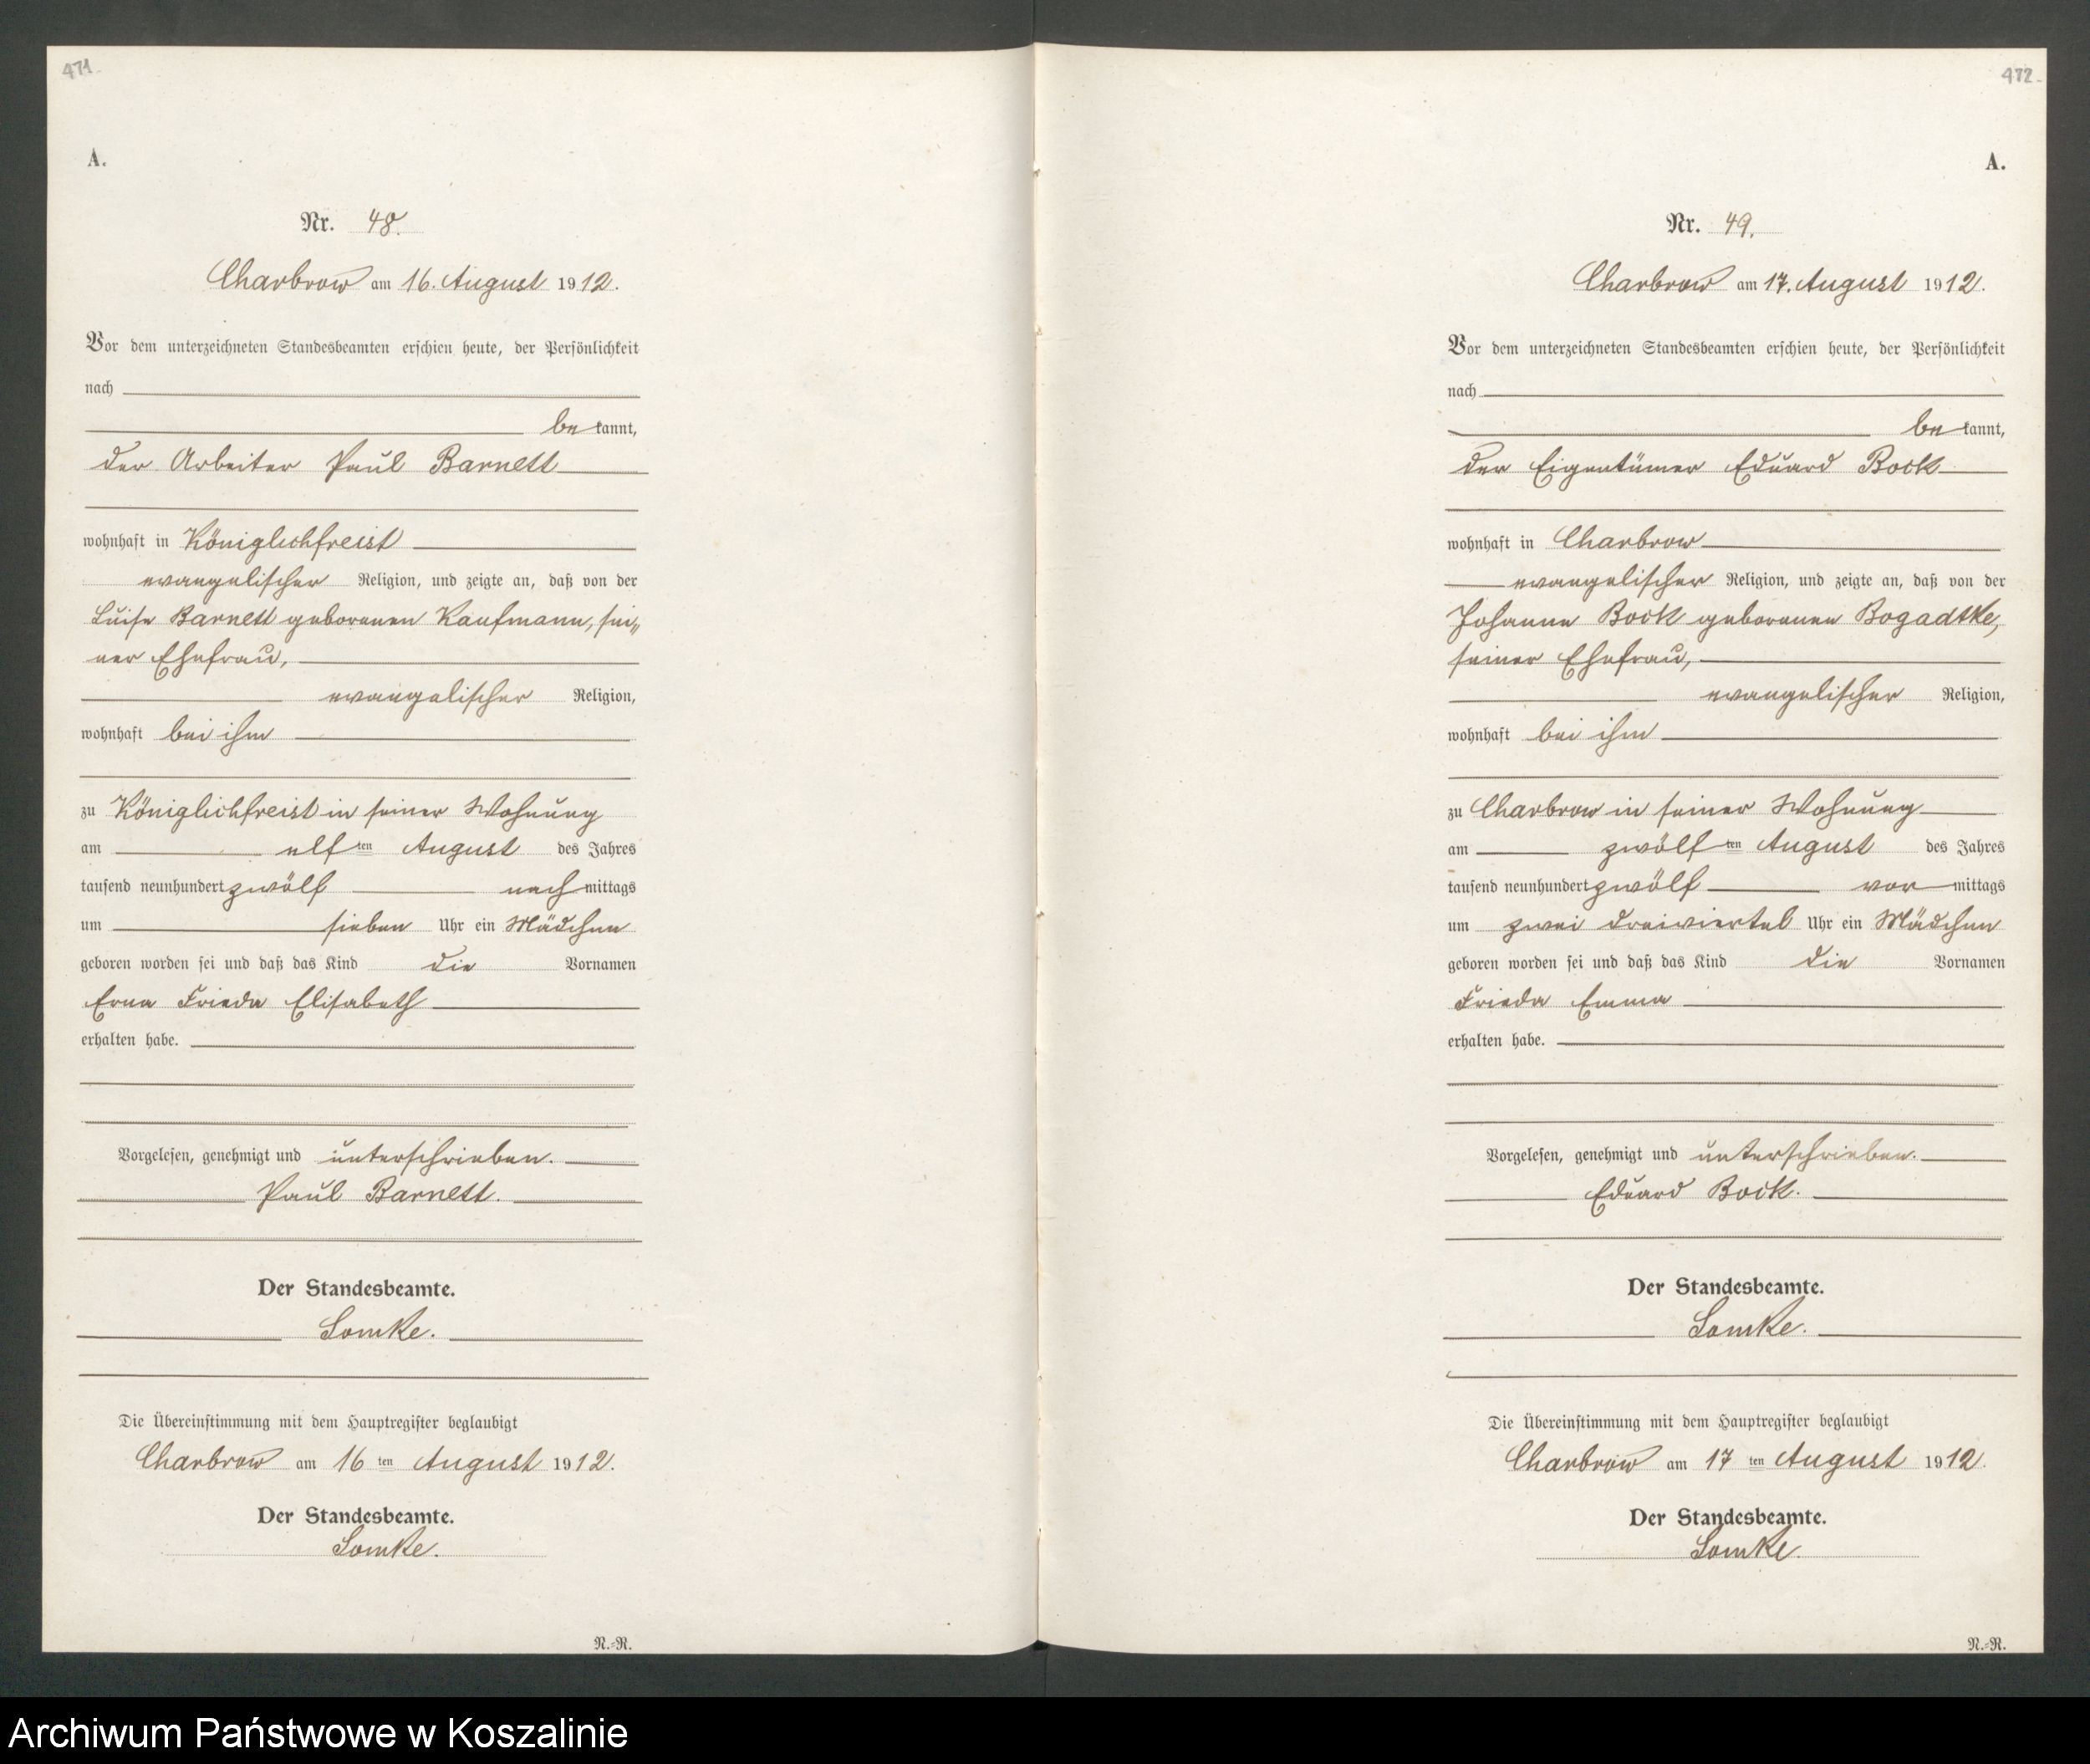 471.
A.
Nr. 48.
Charbrow am 16. August 1912.
Vor dem unterzeichneten Standesbeamten erschien heute, der Persönlichkeit
nach
be kannt,
der Arbeiter Paul Barnett
wohnhaft in Königlichfreist
evangelischer Religion, und zeigte an, daß von der
Luise Barnett geborenen Kaufmann, sei„
ner Ehefrau,
evangelischer Religion,
wohnhaft bei ihm
zu Königlichfreist in seiner Wohnung
am elf ten August des Jahres
tausend neunhundert zwölf nach mittags
um sieben Uhr ein Mädchen
geboren worden sei und daß das Kind die Vornamen
Erna Frieda Elisabeth
erhalten habe.
Vorgelesen, genehmigt und unterschrieben.
Paul Barnett.
Der Standesbeamte.
Lomke.
Die Übereinstimmung mit dem Hauptregister beglaubigt
Charbrow am 16 ten August 1912.
Der Standesbeamte.
Lomke.
N.=R.
472.
A.
Nr. 49.
Charbrow am 17. August 1912.
Vor dem unterzeichneten Standesbeamten erschien heute, der Persönlichkeit
nach
be kannt,
der Eigentümer Eduard Bock
wohnhaft in Charbrow
evangelischer Religion, und zeigte an, daß von der
Johanne Bock geborenen Bogadtke,
seiner Ehefrau,
evangelischer Religion,
wohnhaft bei ihm
zu Charbrow in seiner Wohnung
am zwölf ten August des Jahres
tausend neunhundert zwölf vor mittags
um zwei dreiviertel Uhr ein Mädchen
geboren worden sei und daß das Kind die Vornamen
Frieda Emma
erhalten habe.
Vorgelesen, genehmigt und unterschrieben.
Eduard Bock.
Der Standesbeamte.
Lomke.
Die Übereinstimmung mit dem Hauptregister beglaubigt
Charbrow am 17 ten August 1912.
Der Standesbeamte.
Lomke.
N.=R.
Archiwum Państwowe w Koszalinie